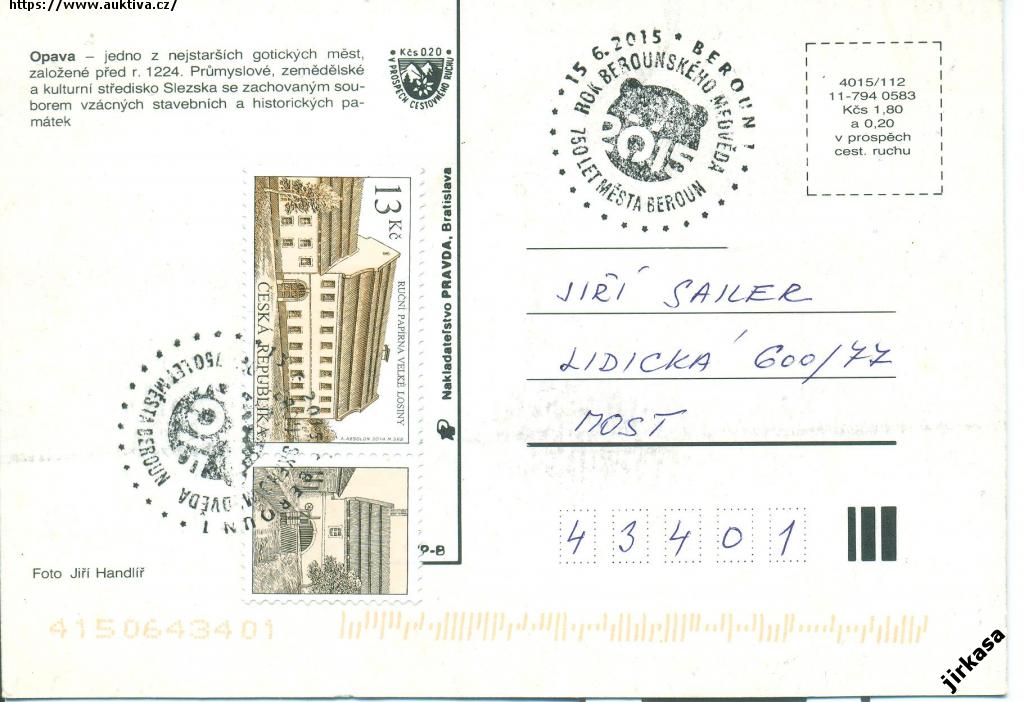 https://www.auktiva.cz/
Opava – jedno z nejstarších gotických měst,
založené před r. 1224. Průmyslové, zemědělské
a kulturní středisko Slezska se zachovaným sou-
borem vzácných stavebních a historických pa-
mátek
Kčs 0,20
V PROSPĚCH CESTOVNÉHO RUCHU
15.6.2015 * BEROUN 1
ROK BEROUNSKÉHO MEDVĚDA
2015
750 LET MĚSTA BEROUN
4015/112
11-794 0583
Kčs 1,80
a 0,20
v prospěch
cest. ruchu
13 Kč
RUČNÍ PAPÍRNA VELKÉ LOSINY
ČESKÁ REPUBLIKA
A. ABSOLON 2014 M. SRB
Nakladateľstvo PRAVDA, Bratislava
JIŘÍ SAILER
LIDICKÁ 600/77
MOST
43401
750 LET MĚSTA BEROUN
BEROUN 1
P-8
Foto Jiří Handlíř
4150643401
jirkasa